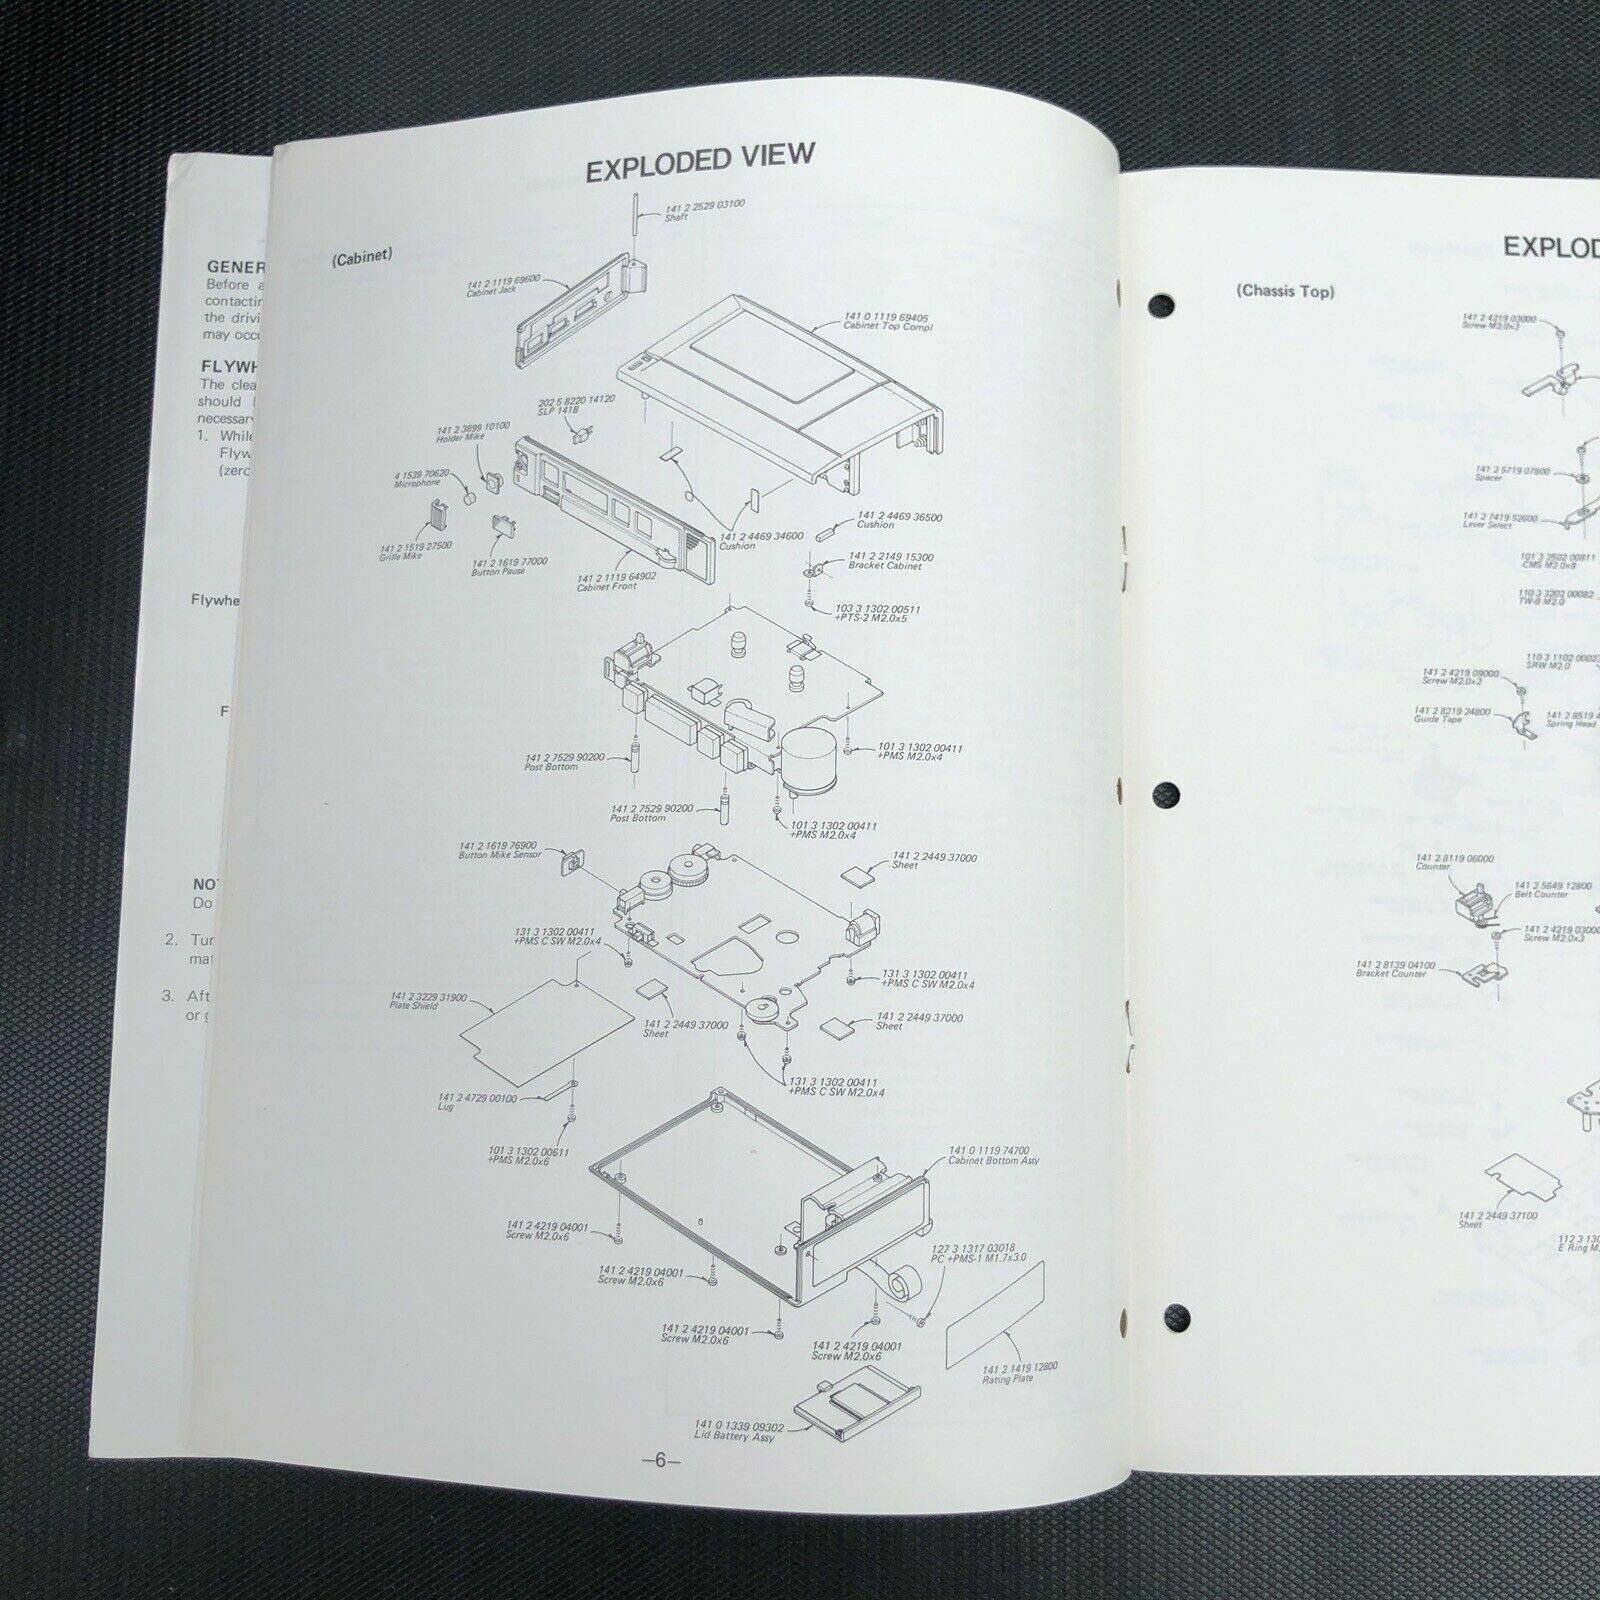 GENER
Before a
contactin
the drivi
may occu
FLYWH
The clea
should
necessary
1. While
Flyw
(zero
Flywhe
F
NOT
Do
2. Tur
mat
3. Aft
or g
EXPLODED VIEW
(Cabinet)
141 2 2529 03100
Shaft
141 2 1119 69600
Cabinet Jack
141 0 1119 69405
Cabinet Top Compl
202 5 8220 14120
SLP 141B
141 2 3899 10100
Holder Mike
4 1539 70620
Microphone
141 2 1519 27500
Grille Mike
141 2 1619 77000
Button Pause
141 2 1119 64902
Cabinet Front
141 2 4469 34600
Cushion
141 2 4469 36500
Cushion
141 2 2149 15300
Bracket Cabinet
103 3 1302 00511
+PTS-2 M2.0x5
141 2 7529 90200
Post Bottom
101 3 1302 00411
+PMS M2.0x4
141 2 7529 90200
Post Bottom
101 3 1302 00411
+PMS M2.0x4
141 2 1619 76900
Button Mike Sensor
141 2 2449 37000
Sheet
131 3 1302 00411
+PMS C SW M2.0x4
131 3 1302 00411
+PMS C SW M2.0x4
141 2 3229 31900
Plate Shield
141 2 2449 37000
Sheet
141 2 2449 37000
Sheet
131 3 1302 00411
+PMS C SW M2.0x4
141 2 4729 00100
Lug
101 3 1302 00611
+PMS M2.0x6
141 0 1119 74700
Cabinet Bottom Assy
141 2 4219 04001
Screw M2.0x6
141 2 4219 04001
Screw M2.0x6
127 3 1317 03018
PC +PMS-1 M1.7x3.0
141 2 4219 04001
Screw M2.0x6
141 2 4219 04001
Screw M2.0x6
141 2 1419 12800
Rating Plate
141 0 1339 09302
Lid Battery Assy
—6—
EXPLOD
(Chassis Top)
141 2 4219 03000
Screw M2.0x3
141 2 5719 07800
Spacer
141 2 7419 52600
Lever Select
101 3 2502 00811
-CMS M2.0x8
110 3 3202 00082
TW-B M2.0
110 3 1102 00023
SRW M2.0
141 2 4219 09000
Screw M2.0x2
141 2 8219 24800
Guide Tape
141 2 8519 4
Spring Head
141 2 8119 06000
Counter
141 2 5649 12800
Belt Counter
141 2 4219 03000
Screw M2.0x3
141 2 8139 04100
Bracket Counter
141 2 2449 37100
Sheet
112 3 130
E Ring M.